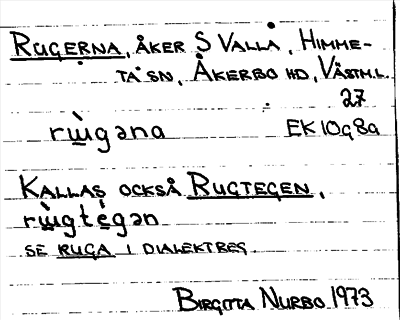 RUGERNA, ÅKER S VALLA, HIMME-
TA SN, ÅKERBO HD, VÄSTML.
27
rɯ̀gəna EK 10g8a
KALLAS OCKSÅ RUGTEGEN,
rɯ̀gtègən
SE RUGA I DIALEKTREG.
BIRGITTA NURBO 1973